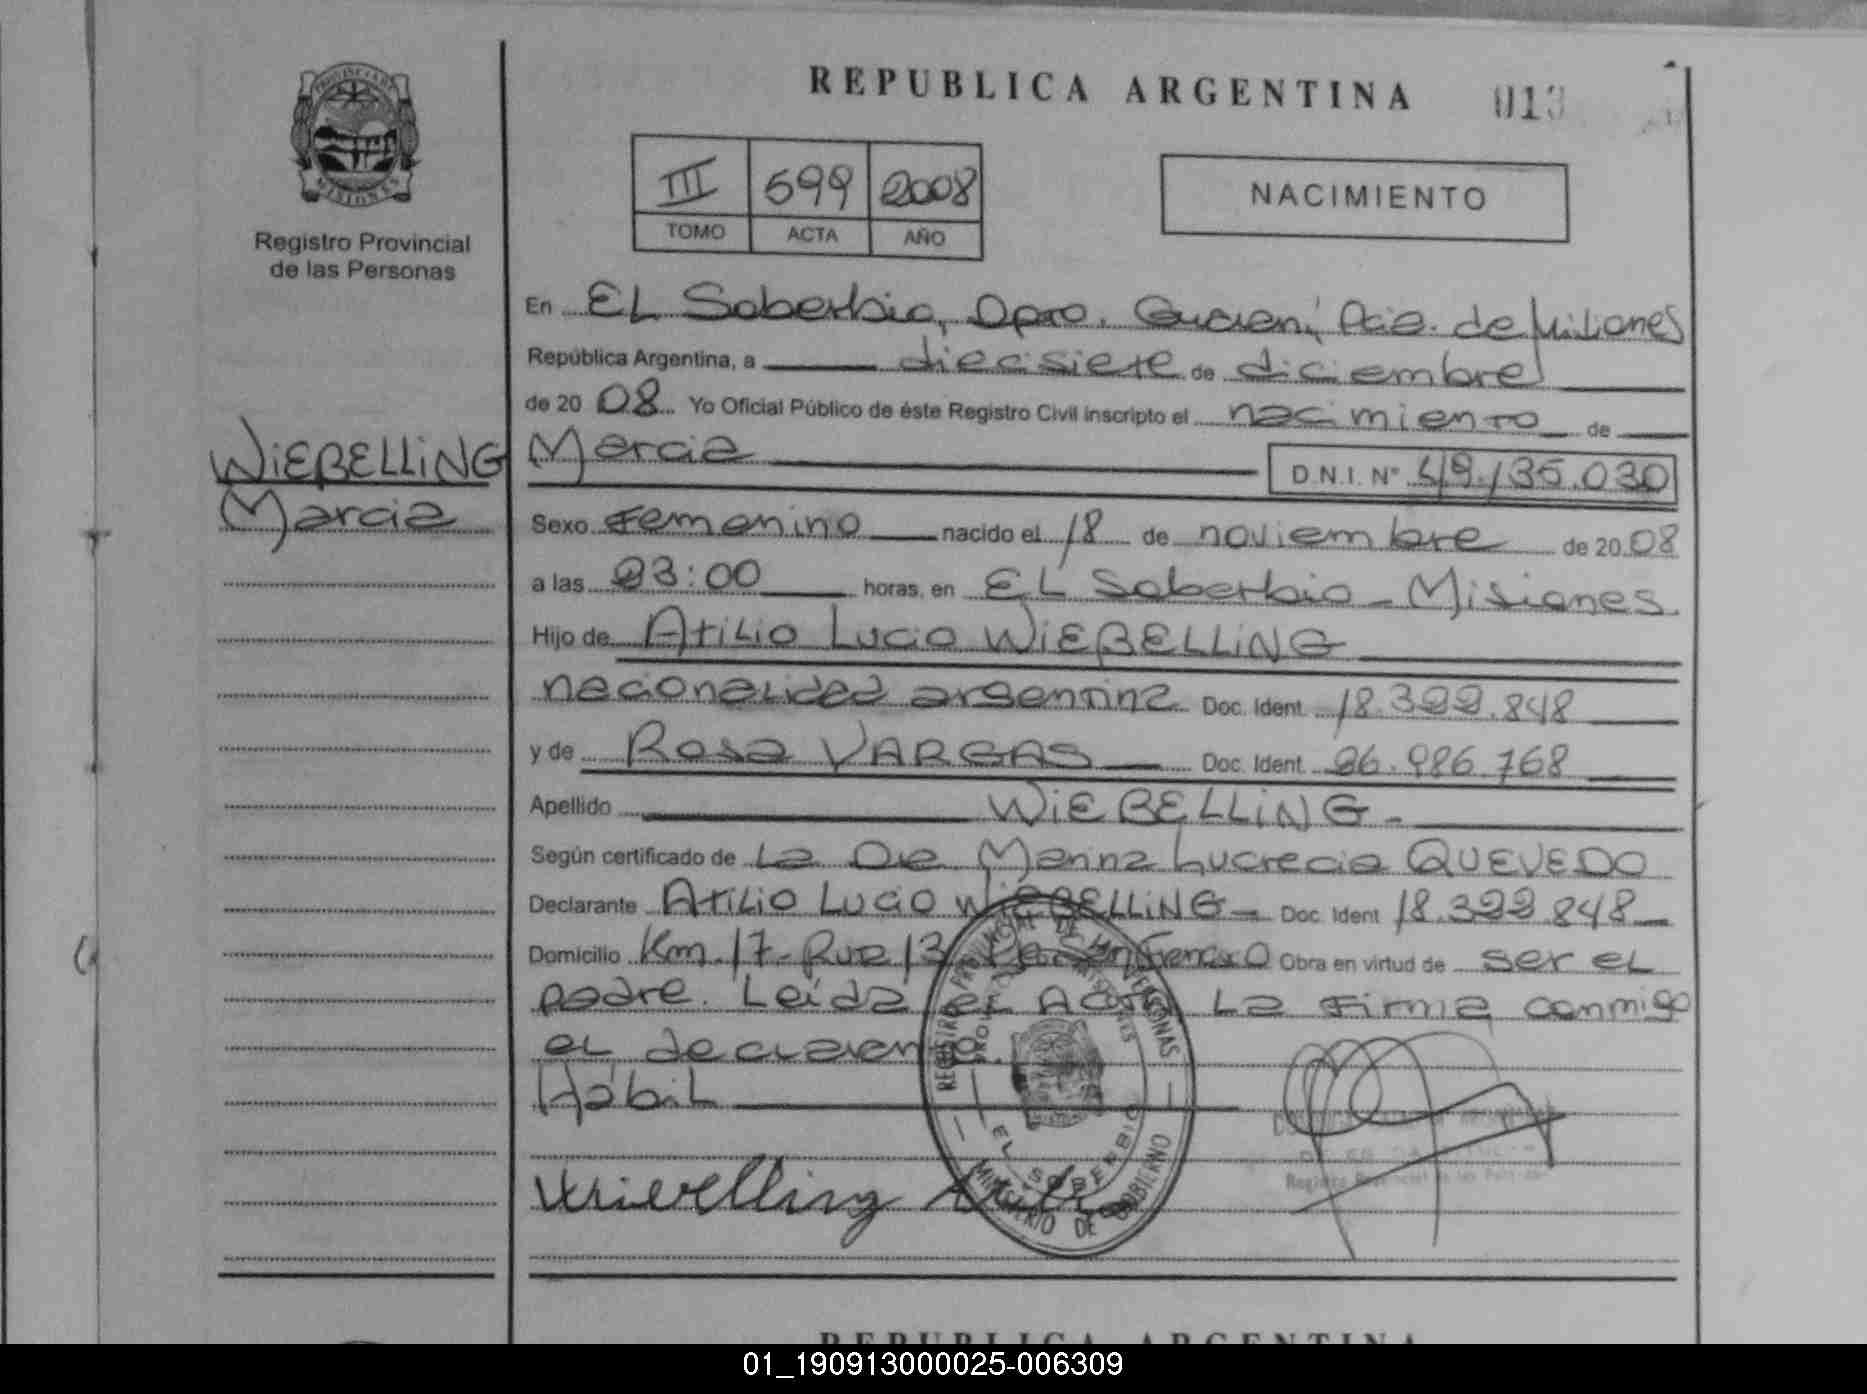 REPUBLICA ARGENTINA
013
PROVINCIA DE
MISIONES
Registro Provincial
de las Personas
III 599 2008
TOMO ACTA AÑO
NACIMIENTO
En EL Soberbio, Dpto. Guaraní, Pcia. de Misiones
República Argentina, a diecisiete de diciembre
de 2008 Yo Oficial Público de éste Registro Civil inscripto el nacimiento de
WiEBELLiNG
Marcia
Marcia D.N.I. Nº 49.135.030
Sexo Femenino nacido el 18 de noviembre de 2008
a las 23:00 horas, en EL Soberbio - Misiones.
Hijo de Atilio Lucio WiEBELLiNG
nacionalidad argentina Doc. Ident. 18.322.848
y de Rosa VARGAS Doc. Ident. 26.986.768
Apellido WiEBELLiNG -
Según certificado de La Dra Marina Lucrecia QUEVEDO
Declarante Atilio Lucio WiEBELLiNG - Doc. Ident 18.322.848
Domicilio Km. 17 - Ruta 13 Obra en virtud de ser el
padre. Leída el Acta La Firma conmigo
el declarante.
Hábil
REGISTRO PROVINCIAL DE LAS PERSONAS
EL SOBERBIO
MINISTERIO DE GOBIERNO
Registro Provincial de las Personas
REPUBLICA ARGENTINA
01_190913000025-006309